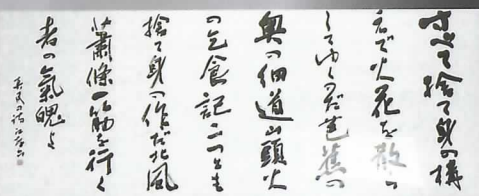 すべて捨て身の構
えで火花を散ら
してゆくのだ芭蕉の
奥の細道山頭火
の乞食記二つとも
捨て身の作だ北風
蕭條一筋を行く
者の氣魄よ
真民の詩